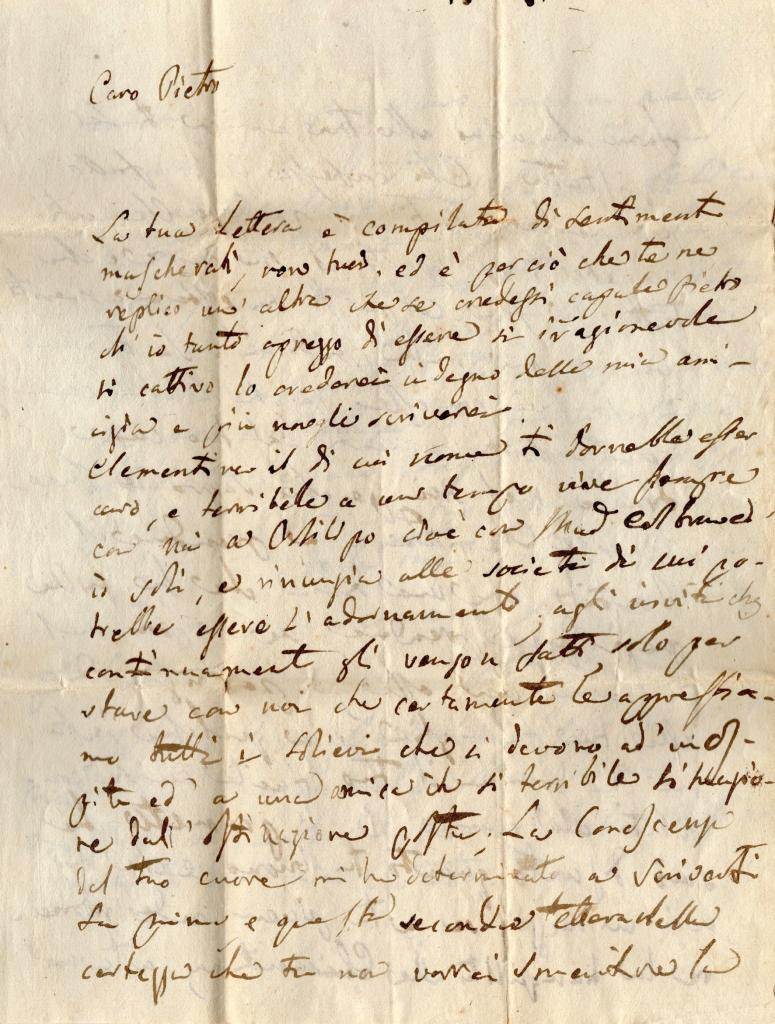 Caro Pietro
La tua Lettera è compilata di sentimenti
mascherati, non tuoi, ed è per ciò che te ne
replico un' altra che se credessi capace Pietro
ch' io tanto aprezzo di essere si iragionevole
si cattivo lo crederei indegno della mia ami-
cizia e più non gli scriverei.
Clementina il di cui nome ti dovrebbe esser
caro, e terribile a un tempo vive sempre
con noi a cioè con Mad ed
io soli, e rinunzia alle società di cui po-
trebbe essere l' adornamento, agli inviti che
continuamente gli vengon fatti, solo per
stare con noi che certamente le appresta-
mo tutti i solievi che si devono ad' un os-
pite ed' a una amica in si terribile
dall' ostinazione posta. La Conoscenza
del tuo cuore mi ha determinato a scriverti
La prima, e questa seconda lettera della
certezza che tu non vorrai smentire la